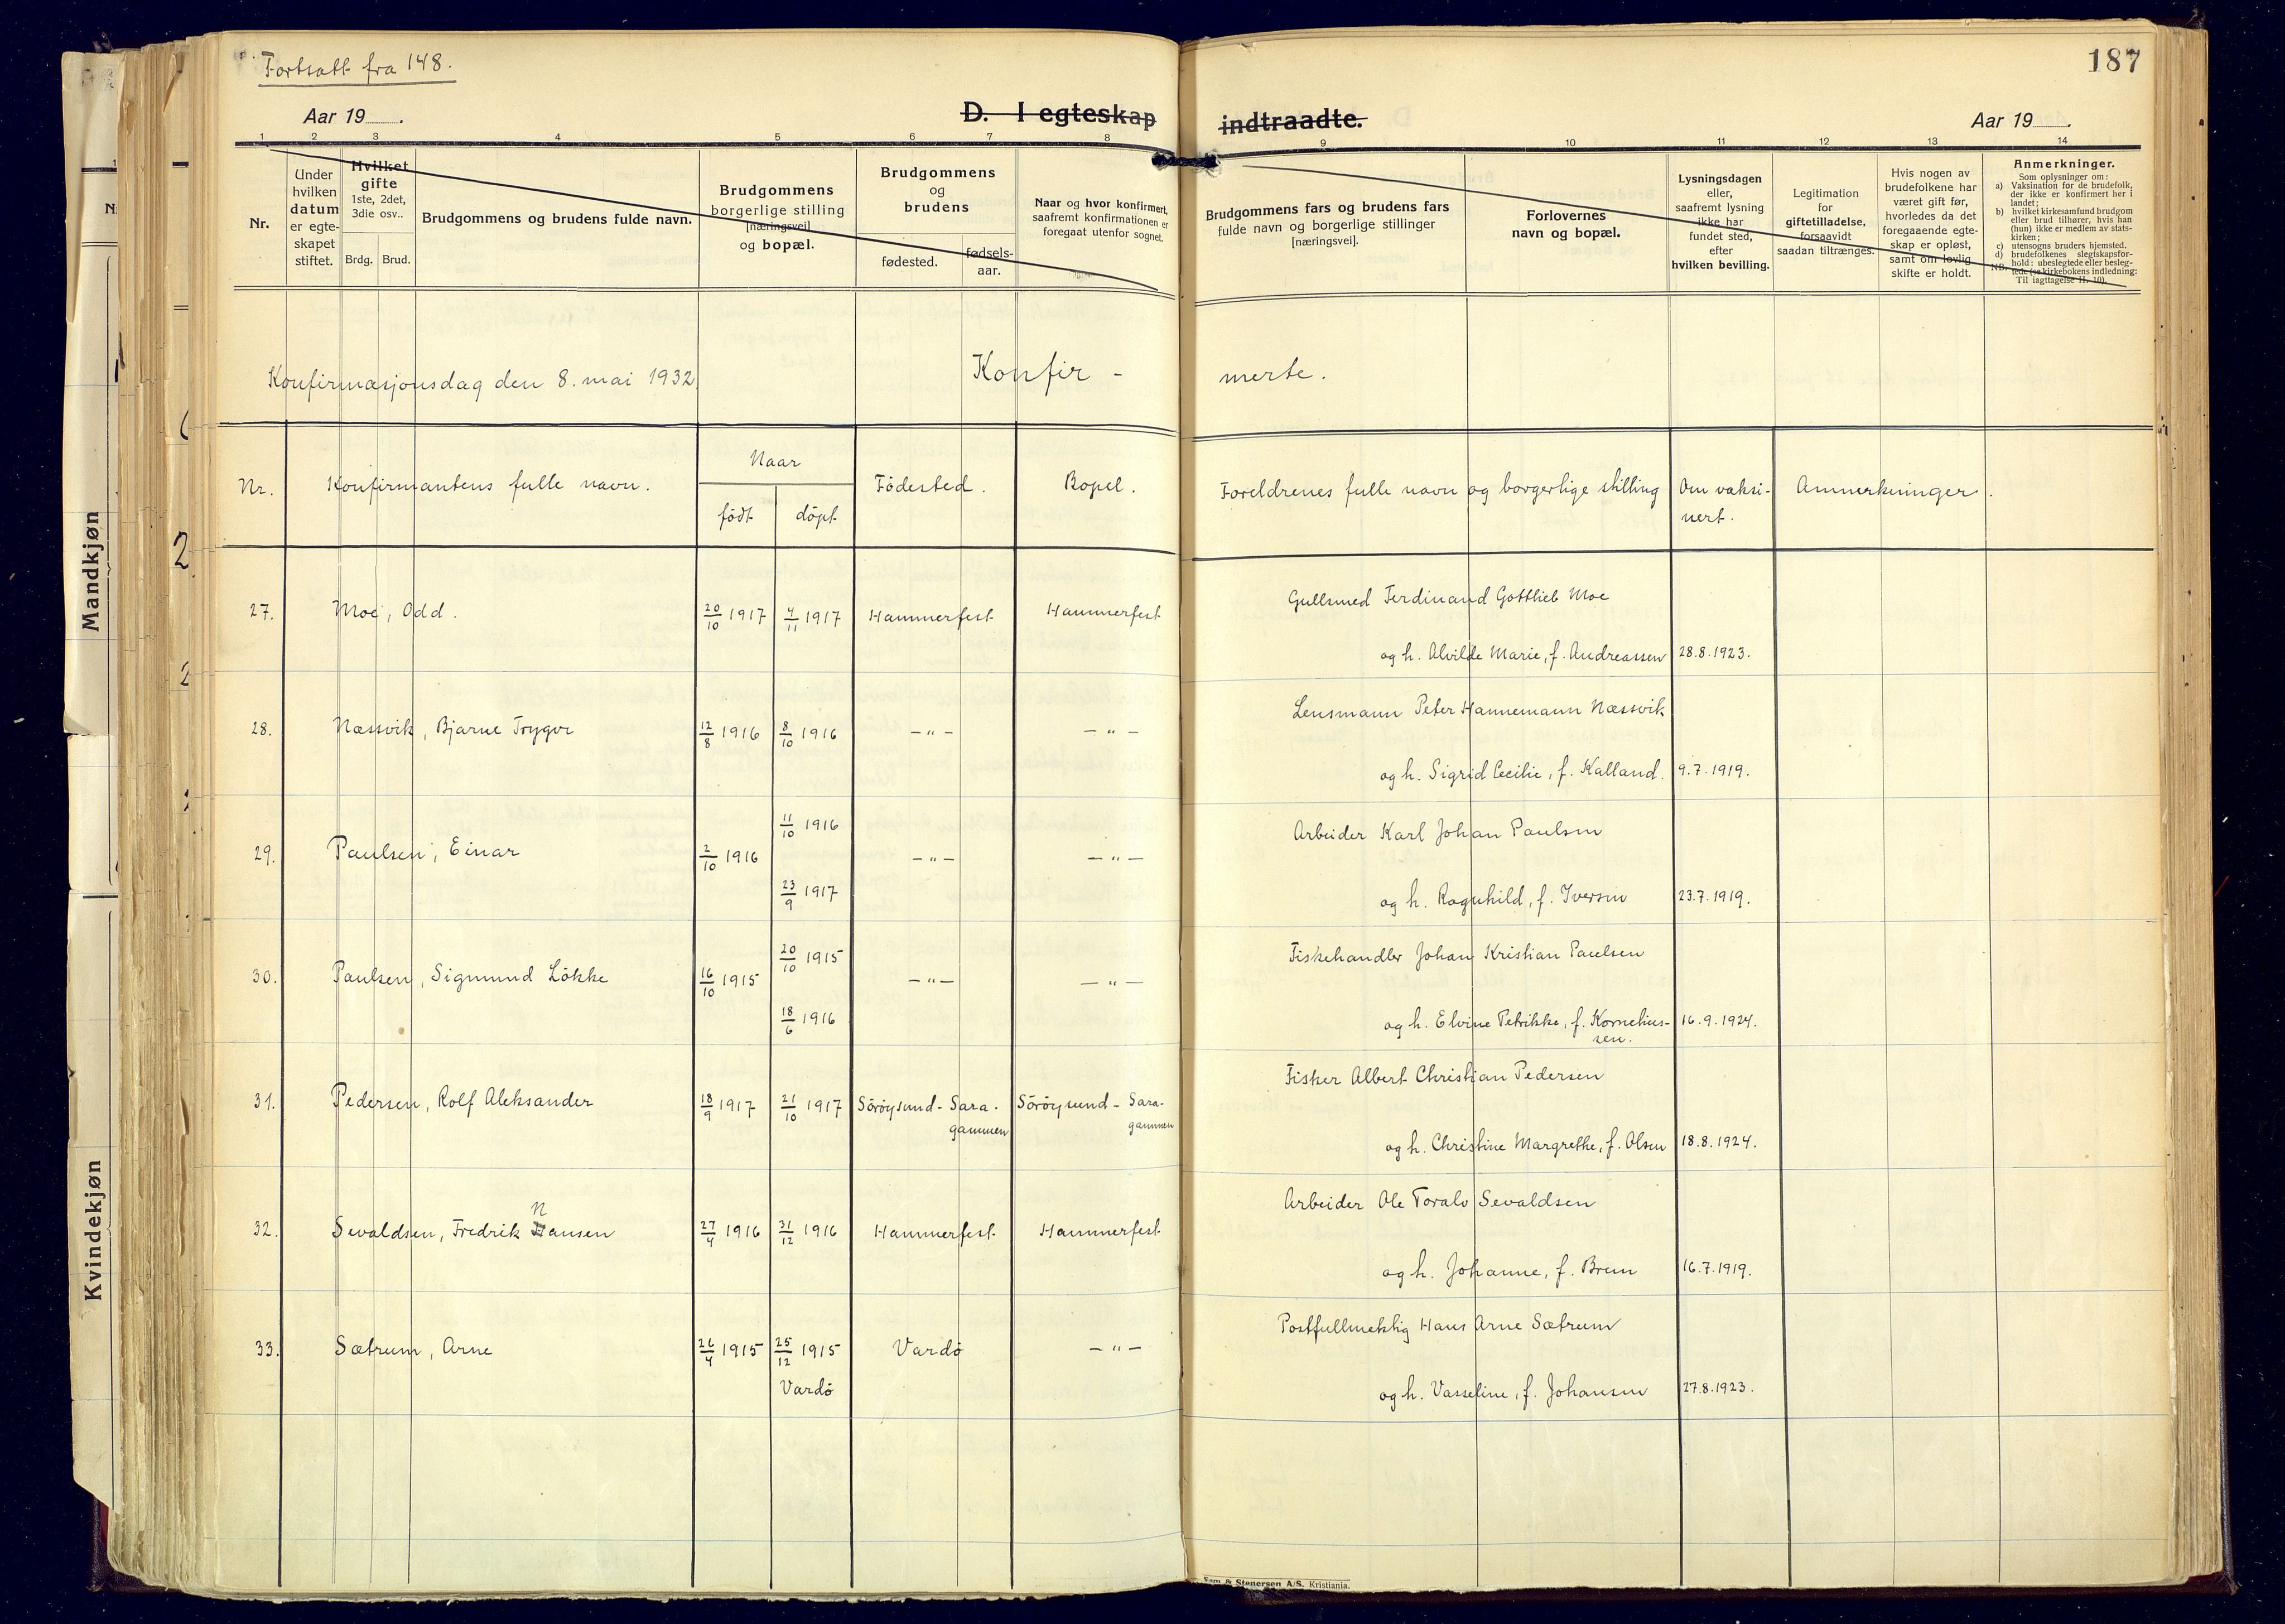 Fortsatt fra 148.
187
Aar 19 . D. I egteskap indtraadte. Aar 19 .
1 2 3 4 5 6 7 8 9 10 11 12 13 14
Nr.
Under
hvilken
datum
er egte-
skapet
stiftet.
Hvilket
gifte
1ste, 2det,
3die osv..
Brdg. Brud.
Brudgommens og brudens fulde navn.
Brudgommens
borgerlige stilling
[næringsvei]
og bopæl.
Brudgommens
og
brudens
fødested.
fødsels-
aar.
Naar og hvor konfirmert,
saafremt konfirmationen er
foregaat utenfor sognet.
Brudgommens fars og brudens fars
fulde navn og borgerlige stillinger
[næringsvei].
Forlovernes
navn og bopæl.
Lysningsdagen
eller,
saafremt lysning
ikke har
fundet sted,
efter
hvilken bevilling.
Legitimation
for
giftetilladelse,
forsaavidt
saadan tiltrænges.
Hvis nogen av
brudefolkene har
været gift før,
hvorledes da det
foregaaende egte-
skap er opløst,
samt om lovlig
skifte er holdt.
Anmerkninger.
Som oplysninger om:
a) Vaksination for de brudefolk,
der ikke er konfirmert her i
landet;
b) hvilket kirkesamfund brudgom
eller brud tilhører, hvis han
(hun) ikke er medlem av stats-
kirken;
c) utensogns bruders hjemsted.
d) brudefolkenes slegtskapsfor-
hold: ubeslegtede eller besleg-
tede (se kirkebokens indledning:
NB. Til iagttagelse II. 10).
Konfirmasjonsdag den 8. mai 1932. Konfir - merte.
Nr. Konfirmantens fulle navn. Naar Födested. Bopel. Foreldrenes fulle navn og borgerlige stilling Om vaksi- Anmerkninger.
nert.
födt döpt
27. Moe, Odd. 20/10 1917 4/11 1917 Hammerfest Hammerfest Gullsmed Ferdinand Gottlieb Moe
og h. Alvilde Marie, f. Andreassen 28.8.1923.
28. Næssvik, Bjarne Trygve 12/8 1916 8/10 1916 — " — — " — Lensmann Peter Hannemann Næssvik
og h. Sigrid Cecilie, f. Kalland. 9.7.1919.
29. Paulsen, Einar 2/10 1916 11/10 1916 — " — — " — Arbeider Karl Johan Paulsen
23/9 1917 og h. Ragnhild, f. Iversen 23.7.1919.
30. Paulsen, Sigmund Lökke 16/10 1915 20/10 1915 — " — — " — Fiskehandler Johan Kristian Paulsen
18/6 1916 og h. Elvine Petrikke, f. Kornelius- 16.9.1924.
sen.
31. Pedersen, Rolf Aleksander 18/9 1917 21/10 1917 Söröysund - Sara- Söröysund - Sara- Fisker Albert Christian Pedersen
gammen gammen
og h. Christine Margrethe, f. Olsen 18.8.1924.
N
32. Sevaldsen, Fredrik Hansen 27/4 1916 31/12 1916 Hammerfest Hammerfest Arbeider Ole Toralv Sevaldsen
og h. Johanne, f. Brun 16.7.1919.
33. Sætrum, Arne 26/4 1915 25/12 1915 Vardö — " — Postfullmektig Hans Arne Sætrum
Vardö og h. Vasseline, f. Johansen 27.8.1923.
& Stenersen A/S. Kristiania.
Mandkjøn
Kvindekjøn